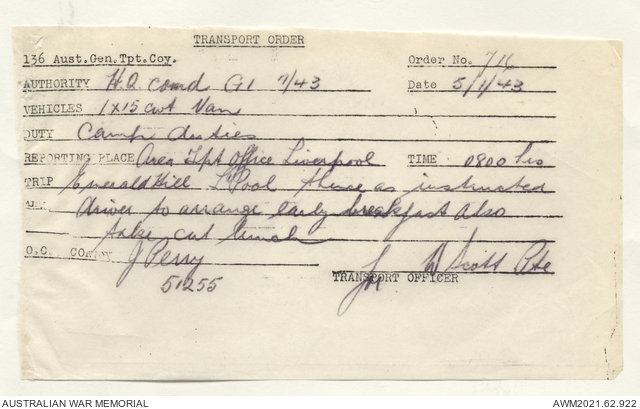 TRANSPORT ORDER
136 Aust.Gen.Tpt.Coy. Order No. 716
AUTHORITY H.Q. comd G1 1/43 Date 5/1/43
VEHICLES 1x15 cwt Van
DUTY Camp duties
REPORTING PLACE Area Tpt Office Liverpool TIME 0800 hrs
TRIP Emerald Hill L'Pool thence as instructed
driver to arrange early breakfast also
take cut lunch
O.C. J Perry Scott Pte
51255 for TRANSPORT OFFICER
AUSTRALIAN WAR MEMORIAL AWM2021.62.922